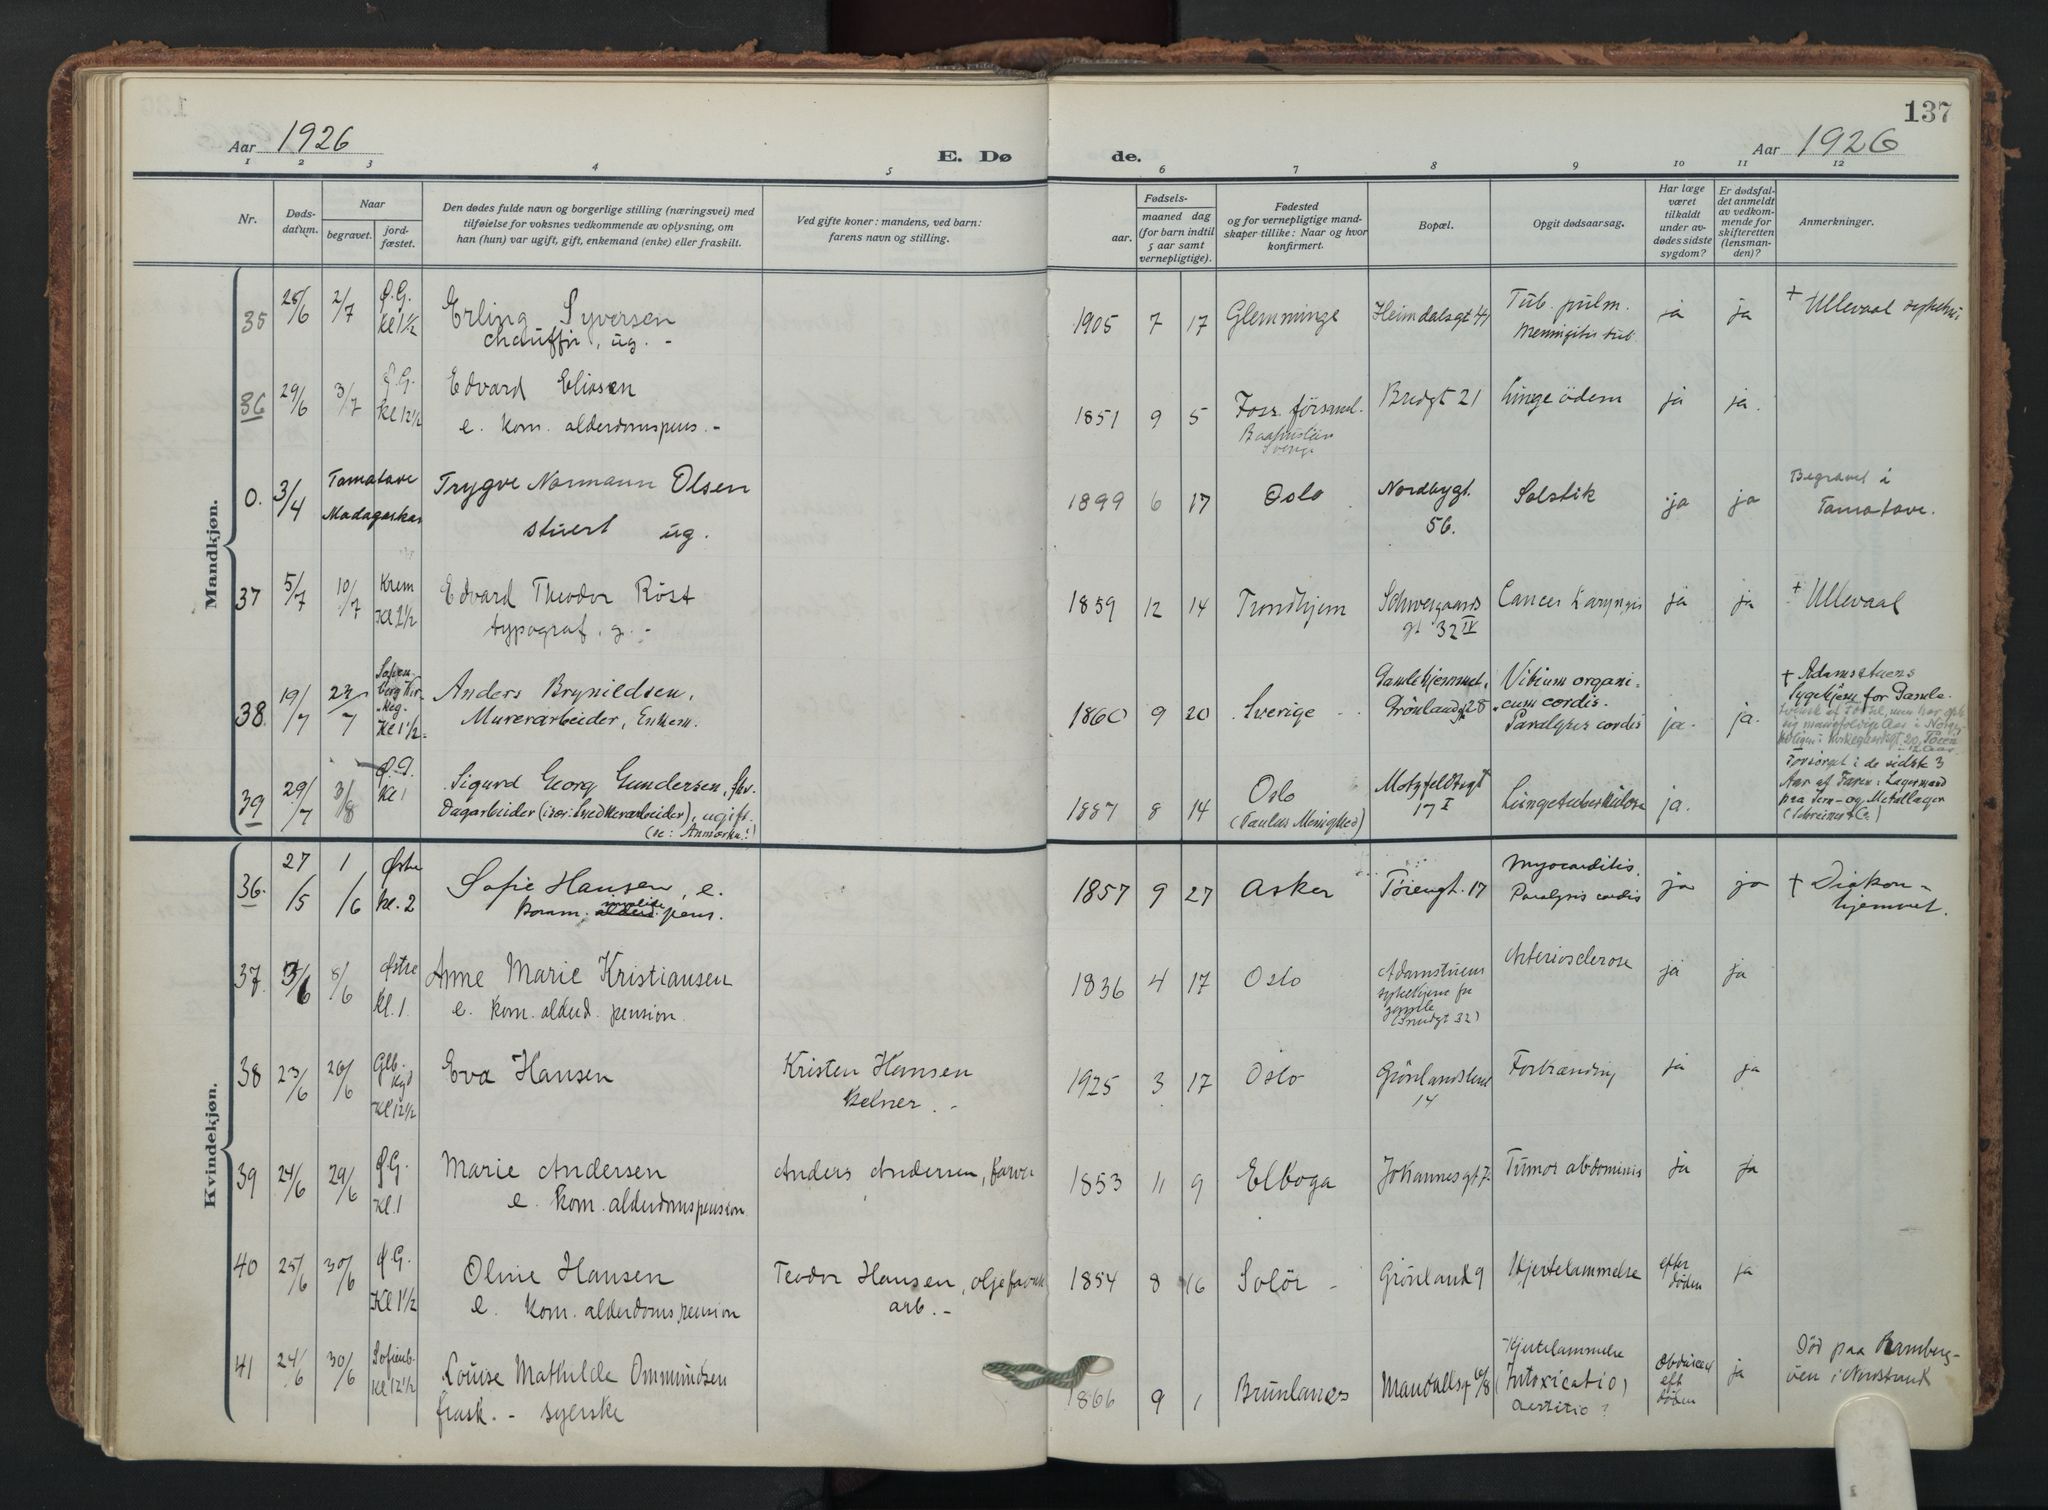 137
Aar 1926
E. Døde.
Aar 1926
1 2 3 4 5 6 7 8 9 10 11 12
Nr.
Døds-
datum.
Naar
begravet.
jord-
fæstet.
Den dødes fulde navn og borgerlige stilling (næringsvei) med
tilføielse for voksnes vedkommende av oplysning, om
han (hun) var ugift, gift, enkemand (enke) eller fraskilt.
Ved gifte koner: mandens, ved barn:
farens navn og stilling.
Fødsels-
aar.
maaned dag
(for barn indtil
5 aar samt
vernepligtige).
Fødested
og for vernepligtige mand-
skaper tillike: Naar og hvor
konfirmert.
Bopæl.
Opgit dødsaarsag.
Har læge
været
tilkaldt
under av-
dødes sidste
sygdom?
Er dødsfal-
det anmeldt
av vedkom-
mende for
skifteretten
(lensman-
den)?
Anmerkninger.
Mandkjøn.
35 25/6 2/7 Ø.G. Kl 1½
Erling Syversen
chauffør, ug. -
1905 7 17 Glemminge Heimdalsgt 41
Tub. pulm.
Meningitis tub.
ja ja + Ullevaal
36 29/6 3/7 Ø.G. Kl 12½
Edvard Eliasen
e. kom. alderdomspens. -
1851 9 5
Sverige
Bredgt 21 Lungeødem ja ja.
0. 3/4 Tamatave
Madagaskar
Trygve Normann Olsen
stuert ug.
1899 6 17 Oslo Nordbygt.
56.
Solstik ja ja
Begravet i
Tamatave.
37 5/7 10/7 Krem Kl 2½
Edvard Theodor Röst
typograf. g. -
1859 12 14 Trondhjem Schweigaards
gt 32 IV
Cancer Laryngis ja ja + Ullevaal
38. 19/7 23/7 Kl 1½
Anders Brynildsen,
Murerarbeider, Enkem.
1860 9 20 Sverige
Gamlehjemmet,
Grønlandsgt 28
Vitium organi-
cum cordis.
Paralysis cordis
ja. ja.
+ Adamstuens
Sygehjem for Gamle.
39 29/7 3/8 Ø.G. Kl 1
Sigurd Georg Gundersen, fhv.
Dagarbeider (især: Snedkerarbeider), ugift.
(se: Anmerkn.!)
1887 8 14 Oslo
(Paulus Menighed)
Motzfeldtsgt
17 I
Lungetuberkulose ja.
Forsørget i de sidste 3
Aar af Faren: Lagermand
paa Jern- og Metallager
(Schreiner & Co.)
Kvindekjøn.
36. 27/5 1/6 Østre kl. 2
Sofie Hansen, e.
komm. alders invalide pens.
1857 9 27 Asker Tøiengt. 17
Myocarditis.
Paralysis cordis
ja ja + Diakon-
hjemmet.
37. 3/6 8/6 Østre Kl. 1
Anne Marie Kristiansen
e. kom. alderd. pension.
1836 4 17 Oslo
Adamstuens
sykehjem for
gamle
(Smedgt 32)
Arteriosclerose ja ja
38 23/6 26/6 Glb. Kgd Kl 12½
Eva Hansen
Kristen Hansen
kelner. -
1925 3 17 Oslo Grönlandsleret
14
Forbrænding ja ja
39 24/6 29/6 Ø.G. Kl. 1
Marie Andersen
e. kom. alderdomspension
Anders Andersen, farver
1853 11 9 Elboga Johannesgt 7. Tumor abdominis ja ja
40 25/6 30/6 Ø.G. Kl 1½
Oline Hansen
e. kom. alderdomspension
Teodor Hansen, oljefabrik
arb. -
1854 8 16 Solör - Grönland 9 Hjertelammelse
efter
døden
ja
41 24/6 30/6 Sofienb. Kl 12½
Louise Mathilde Ommundsen
frask. - syerske
1866 9 1 Brunlanes Mandallsgt 6/8
Hjertelammelse
(Intoxicatio)
eft
døden
ja
Død paa Ramberg-
öen i Nøtterø